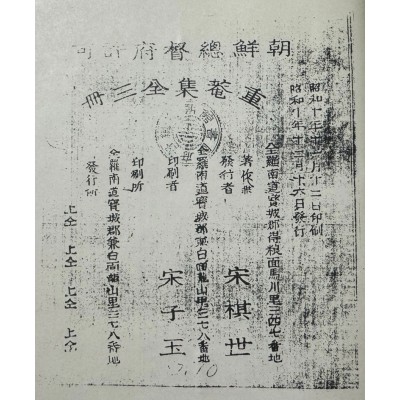 朝鮮總督府許可
重菴集全三冊
昭和十年十二月十二日印刷
昭和十年十二月十六日發行
全羅南道寶城郡得粮面馬川里三四七番地
著作兼
發行者 宋棋世
全羅南道寶城郡兼白面龍山里三七八番地
印刷者 宋子玉
印刷所
全羅南道寶城郡兼白面龍山里三七八番地
發行所 上仝 上仝 上仝 上仝